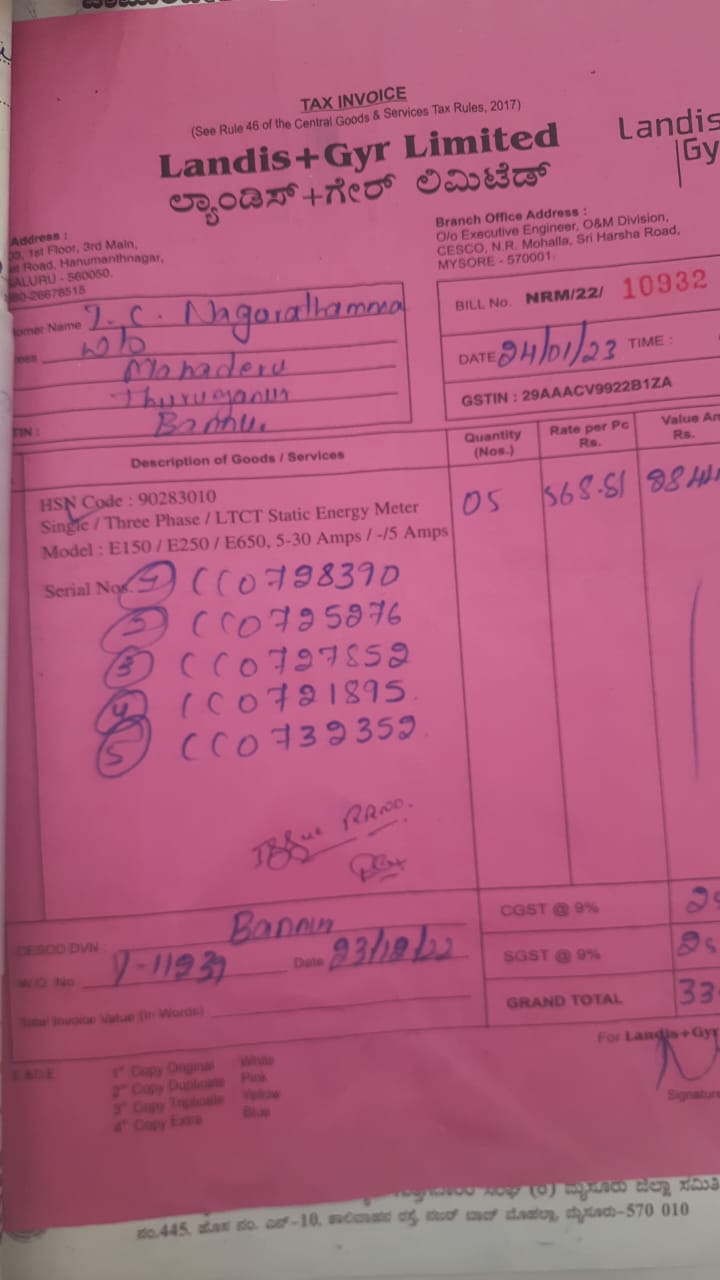 TAX INVOICE
(See Rule 46 of the Central Goods & Services Tax Rules, 2017)
Landis+Gyr Limited
ಲ್ಯಾಂಡಿಸ್+ಗೇರ್ ಲಿಮಿಟೆಡ್
Landis
Gy
Address :
1st Floor, 3rd Main,
Road, Hanumanthnagar,
ALURU - 560050.
80-26678515
Branch Office Address :
O/o Executive Engineer, O&M Division,
CESCO, N.R. Mohalla, Sri Harsha Road,
MYSORE - 570001.
omer Name
W/o
Mahadevu
Bannur
TIN :
BILL No. NRM/22/ 10932
DATE 24/01/23 TIME :
GSTIN : 29AAACV9922B1ZA
Description of Goods / Services
Quantity (Nos.)
Rate per Pc Rs.
Value Am Rs.
HSN Code : 90283010
Single / Three Phase / LTCT Static Energy Meter
Model : E150 / E250 / E650, 5-30 Amps / -/5 Amps
05 568.81
Serial Nos. 1 CC0728390
2 CC0725276
3 CC0727852
4 CC0721895
5 CC0732352
Issue RRNO.
CESCO DVN Bannur
W.O. No Date 23/12/22
Total Invoice Value (In Words)
CGST @ 9%
SGST @ 9%
GRAND TOTAL 33
For Landis+Gyr
Signature
E.&O.E
1st Copy Original White
2nd Copy Duplicate Pink
3rd Copy Triplicate Yellow
4th Copy Extra Blue
(ರಿ) ಮೈಸೂರು ಜಿಲ್ಲಾ ಸಮಿತಿ
ನಂ.445, ಹೊಸ ನಂ. ಎನ್-10, ಮೈಸೂರು-570 010